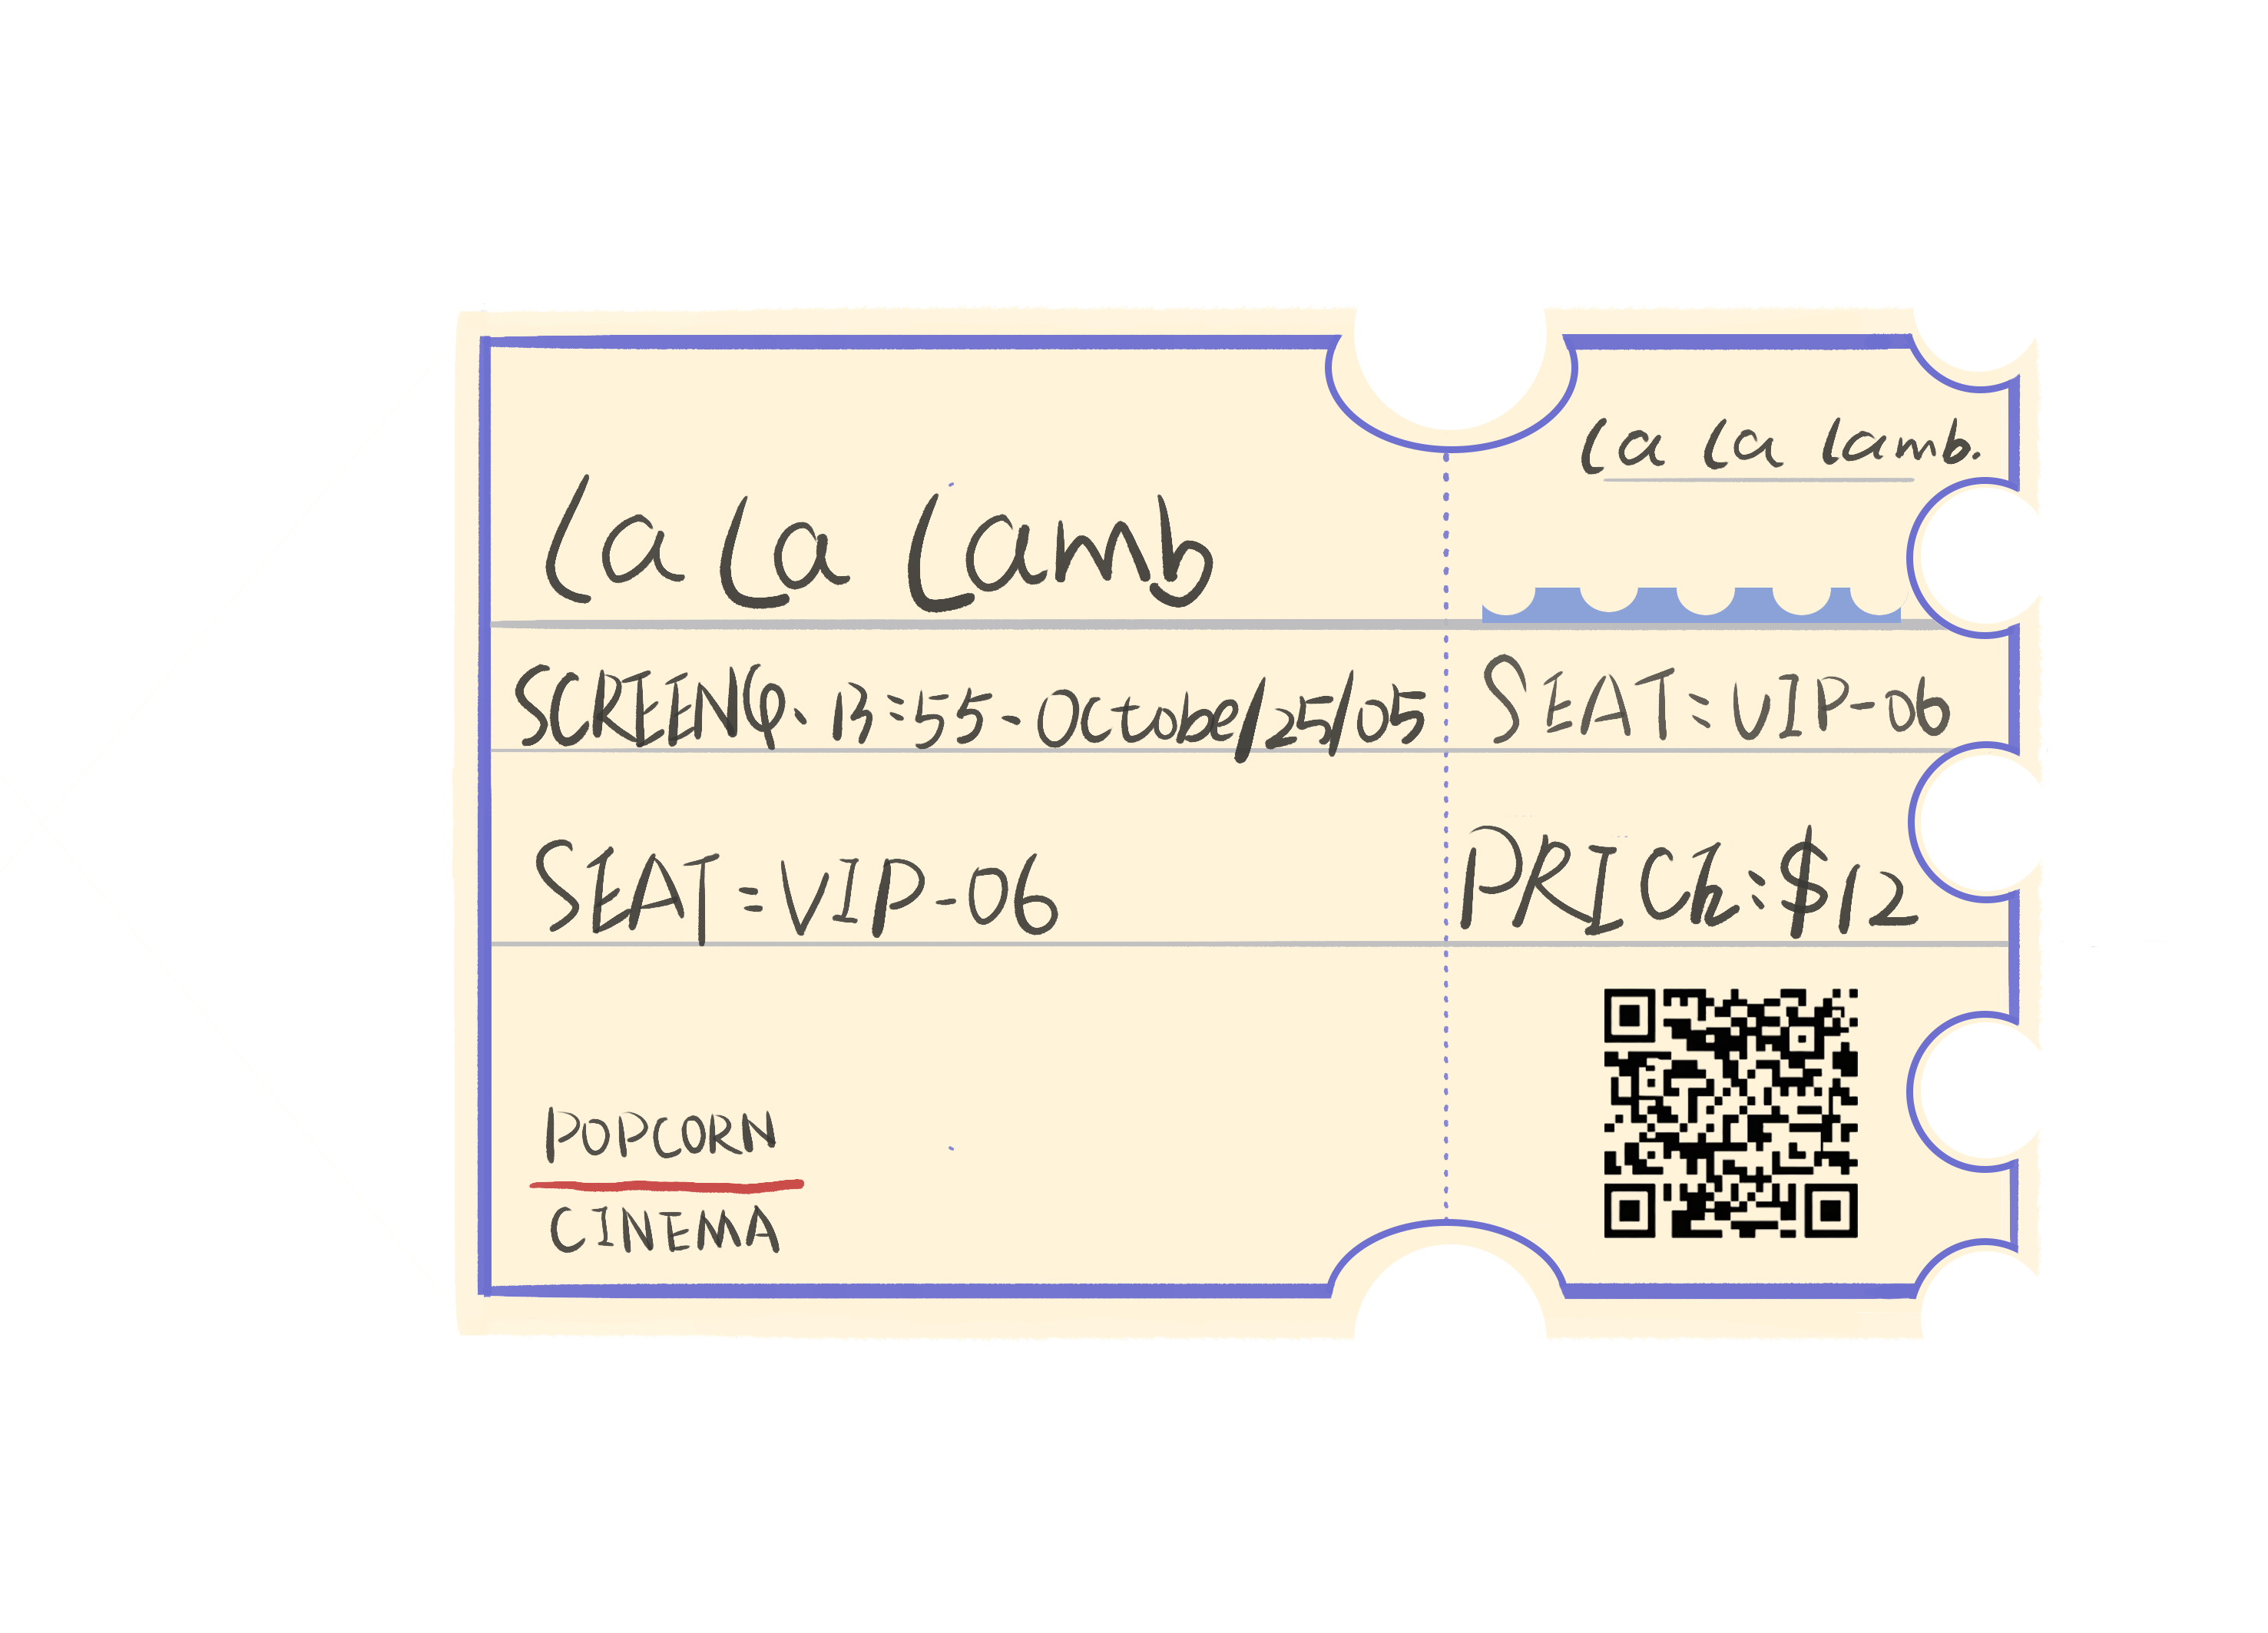 La La Lamb
SCREEN9. 13:55-October/25/05
SEAT:VIP-06
POPCORN
CINEMA
La La Lamb.
SEAT:VIP-06
PRICE:$12